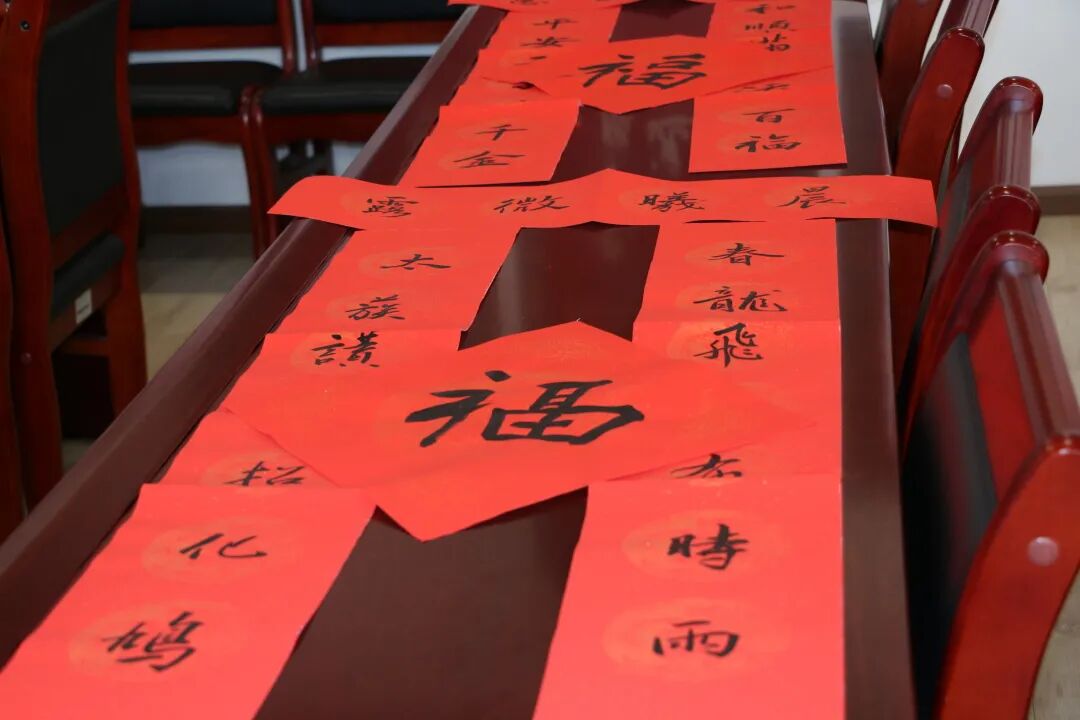 和順
百福
平安
千金
福
晨曦微露
春龍飛
時雨
太蔟讚
招
化鳩
福